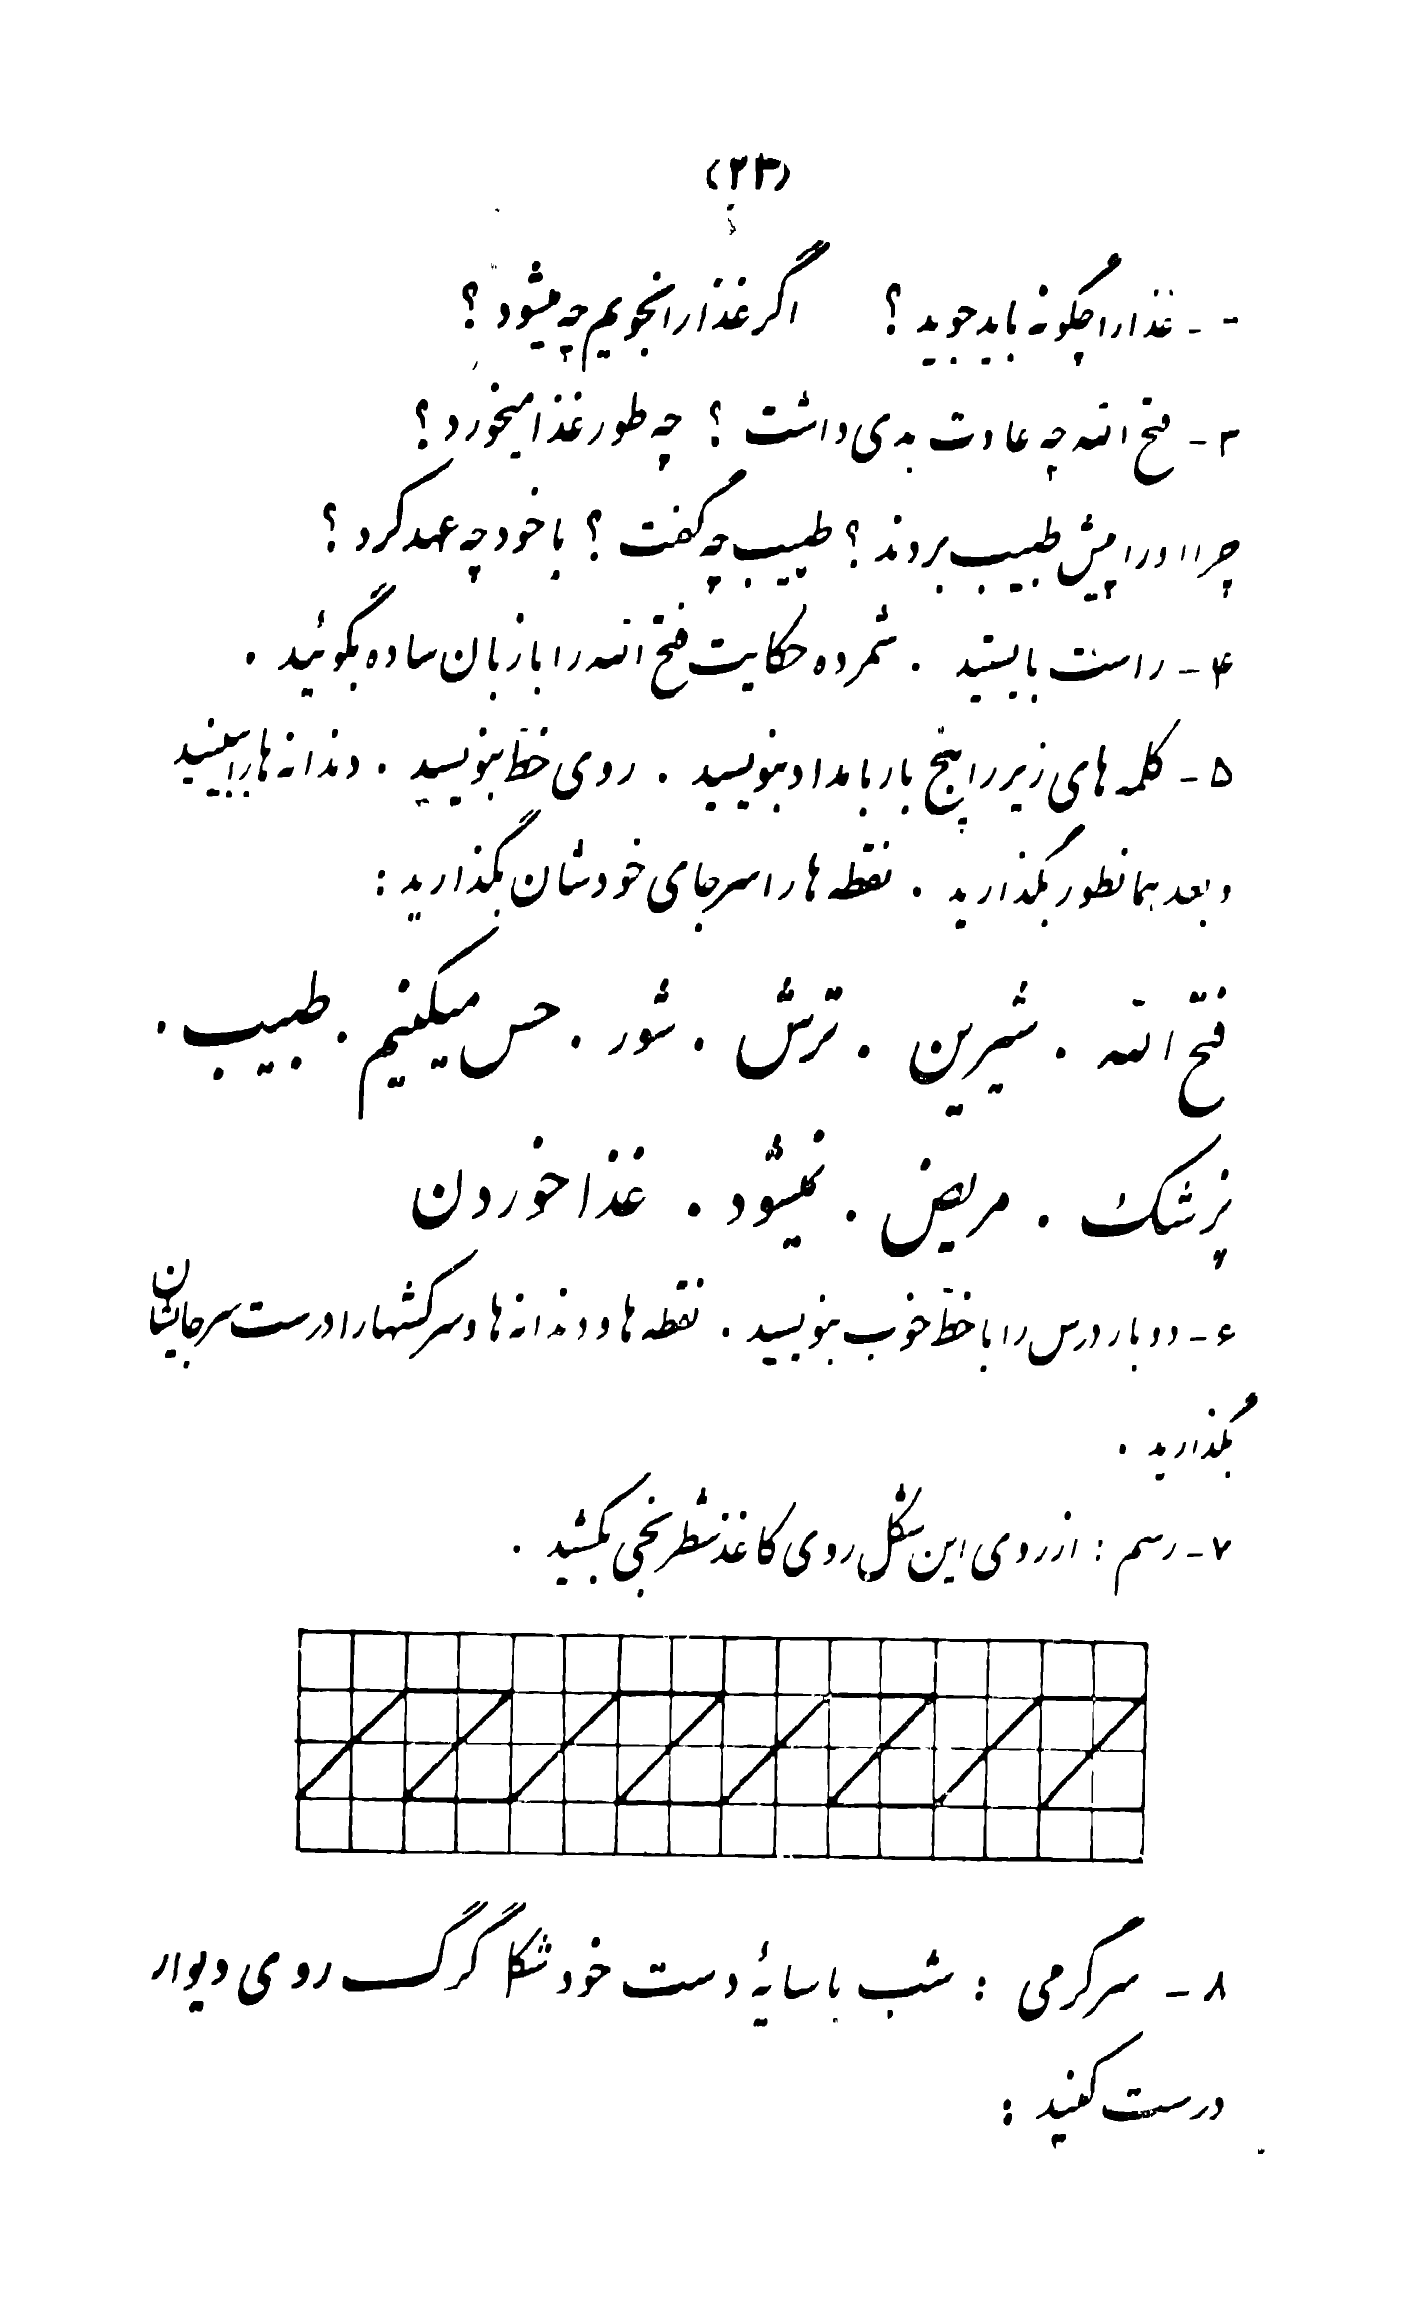 (۲۳)
- - غذا را چگونه باید جوید ؟ اگر غذا را نجویم چه میشود ؟
۳ - فتح الله چه عادت بدی داشت ؟ چه طور غذا میخورد ؟
چرا او را پیش طبیب بردند ؟ طبیب چه گفت ؟ با خود چه عهد کرد ؟
۴ - راست بایستید . شمرده حکایت فتح الله را با زبان ساده بگوئید .
۵ - کلمه های زیر را پنج بار با مداد بنویسید . روی خط بنویسید . دندانه ها را ببینید
و بعد همانطور بگذارید . نقطه ها را سر جای خودشان بگذارید :
فتح الله . شیرین . ترش . شور . حس میکنیم . طبیب .
پزشک . مریض . نمیشود . غذا خوردن
۶ - دو بار درس را با خطّ خوب بنویسید . نقطه ها و دندانه ها و سرکشها را درست سر جایشان
بگذارید .
۷ - رسم : از روی این شکل روی کاغذ شطرنجی بکشید .
۸ - سرگرمی : شب با سایۀ دست خود شکل گرگ روی دیوار
درست کنید :